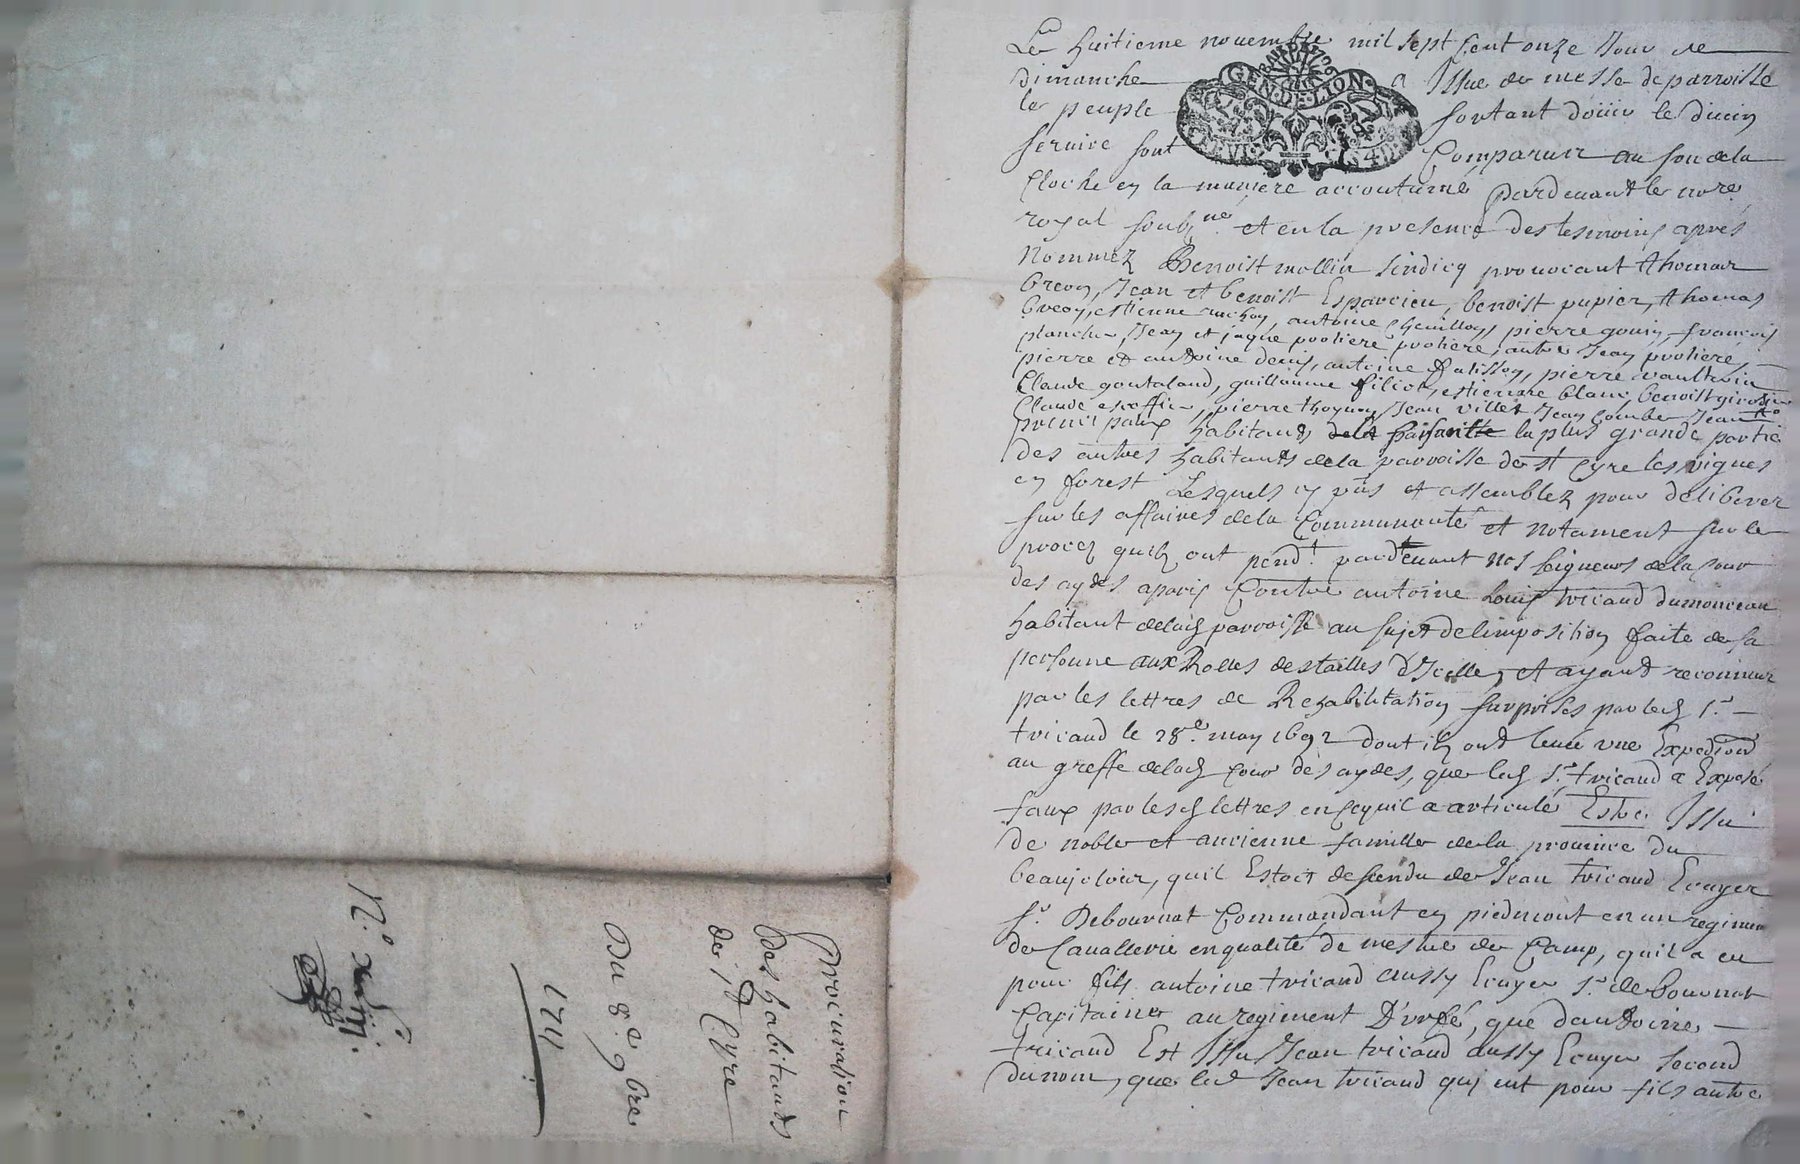 Le huitieme novembre mil sept cent onze Jour de
dimanche a Issue de messe de parroisse
le peuple sortant douir le divin
service sont Comparus au son de la
Cloche en la maniere accoutumé pardevant le no.re
royal soubz.né et en la presence des tesmoins aprés
nommez Benoist mollin sindicq provocant thomas
breon, Jean et benoist Esparcieu, benoist pupier, thomas
breon, estienne antoine pierre gouin, françois
planche, Jean et jaque pooliere autre Jean
pierre et antoine denis, antoine palisson, pierre vaultrin
Claude goutaland, guillaume filiot, estienne blanc, benoist
Claude pierre thoynon Jean ville Jean combe Jean
principaux habitants la plus grande partie
des autres habitants de la parroisse de st Cyre les vignes
en forest Lesquels en p.nts et assemblez pour deliberer
sur les affaires de la Communauté et notament sur le
procez quils ont pend.t pardevant nos seigneurs de la Cour
des aydes a paris Contre antoine Louis tricaud dumonceau
habitant delad parroisse au sujet delimposition faite de sa
personne aux Rolles des tailles d'Icelle, et ayant reconneue
par les lettres de Rehabilitation surprises par led s.r
tricaud le 28.e may 1692 dont ils ont levé une Expedition
au greffe delad Cour des aydes, que led s.r tricaud a Exposé
faux par lesd lettres en ce quil a articulé Estre Issu
de noble et ancienne famille de la province du
beaujolois, quil Estoit desendu de Jean tricaud Ecuyer
s.r Debournat Commandant en piedmont en un regiment
de Cavallerie en qualité de mestre de Camp, quil a eu
pour fils antoine tricaud aussy Ecuyer s.r de bournat
Capitaine au regiment D'urfé, que dantoine
tricaud Est Issu Jean tricaud aussy Ecuyer second
du nom, que led Jean tricaud qui eut pour fils autre
GEN.DE.LION.
Procuration
des habitants
de st Cyre
Du 8.e 9bre
1711
N.o